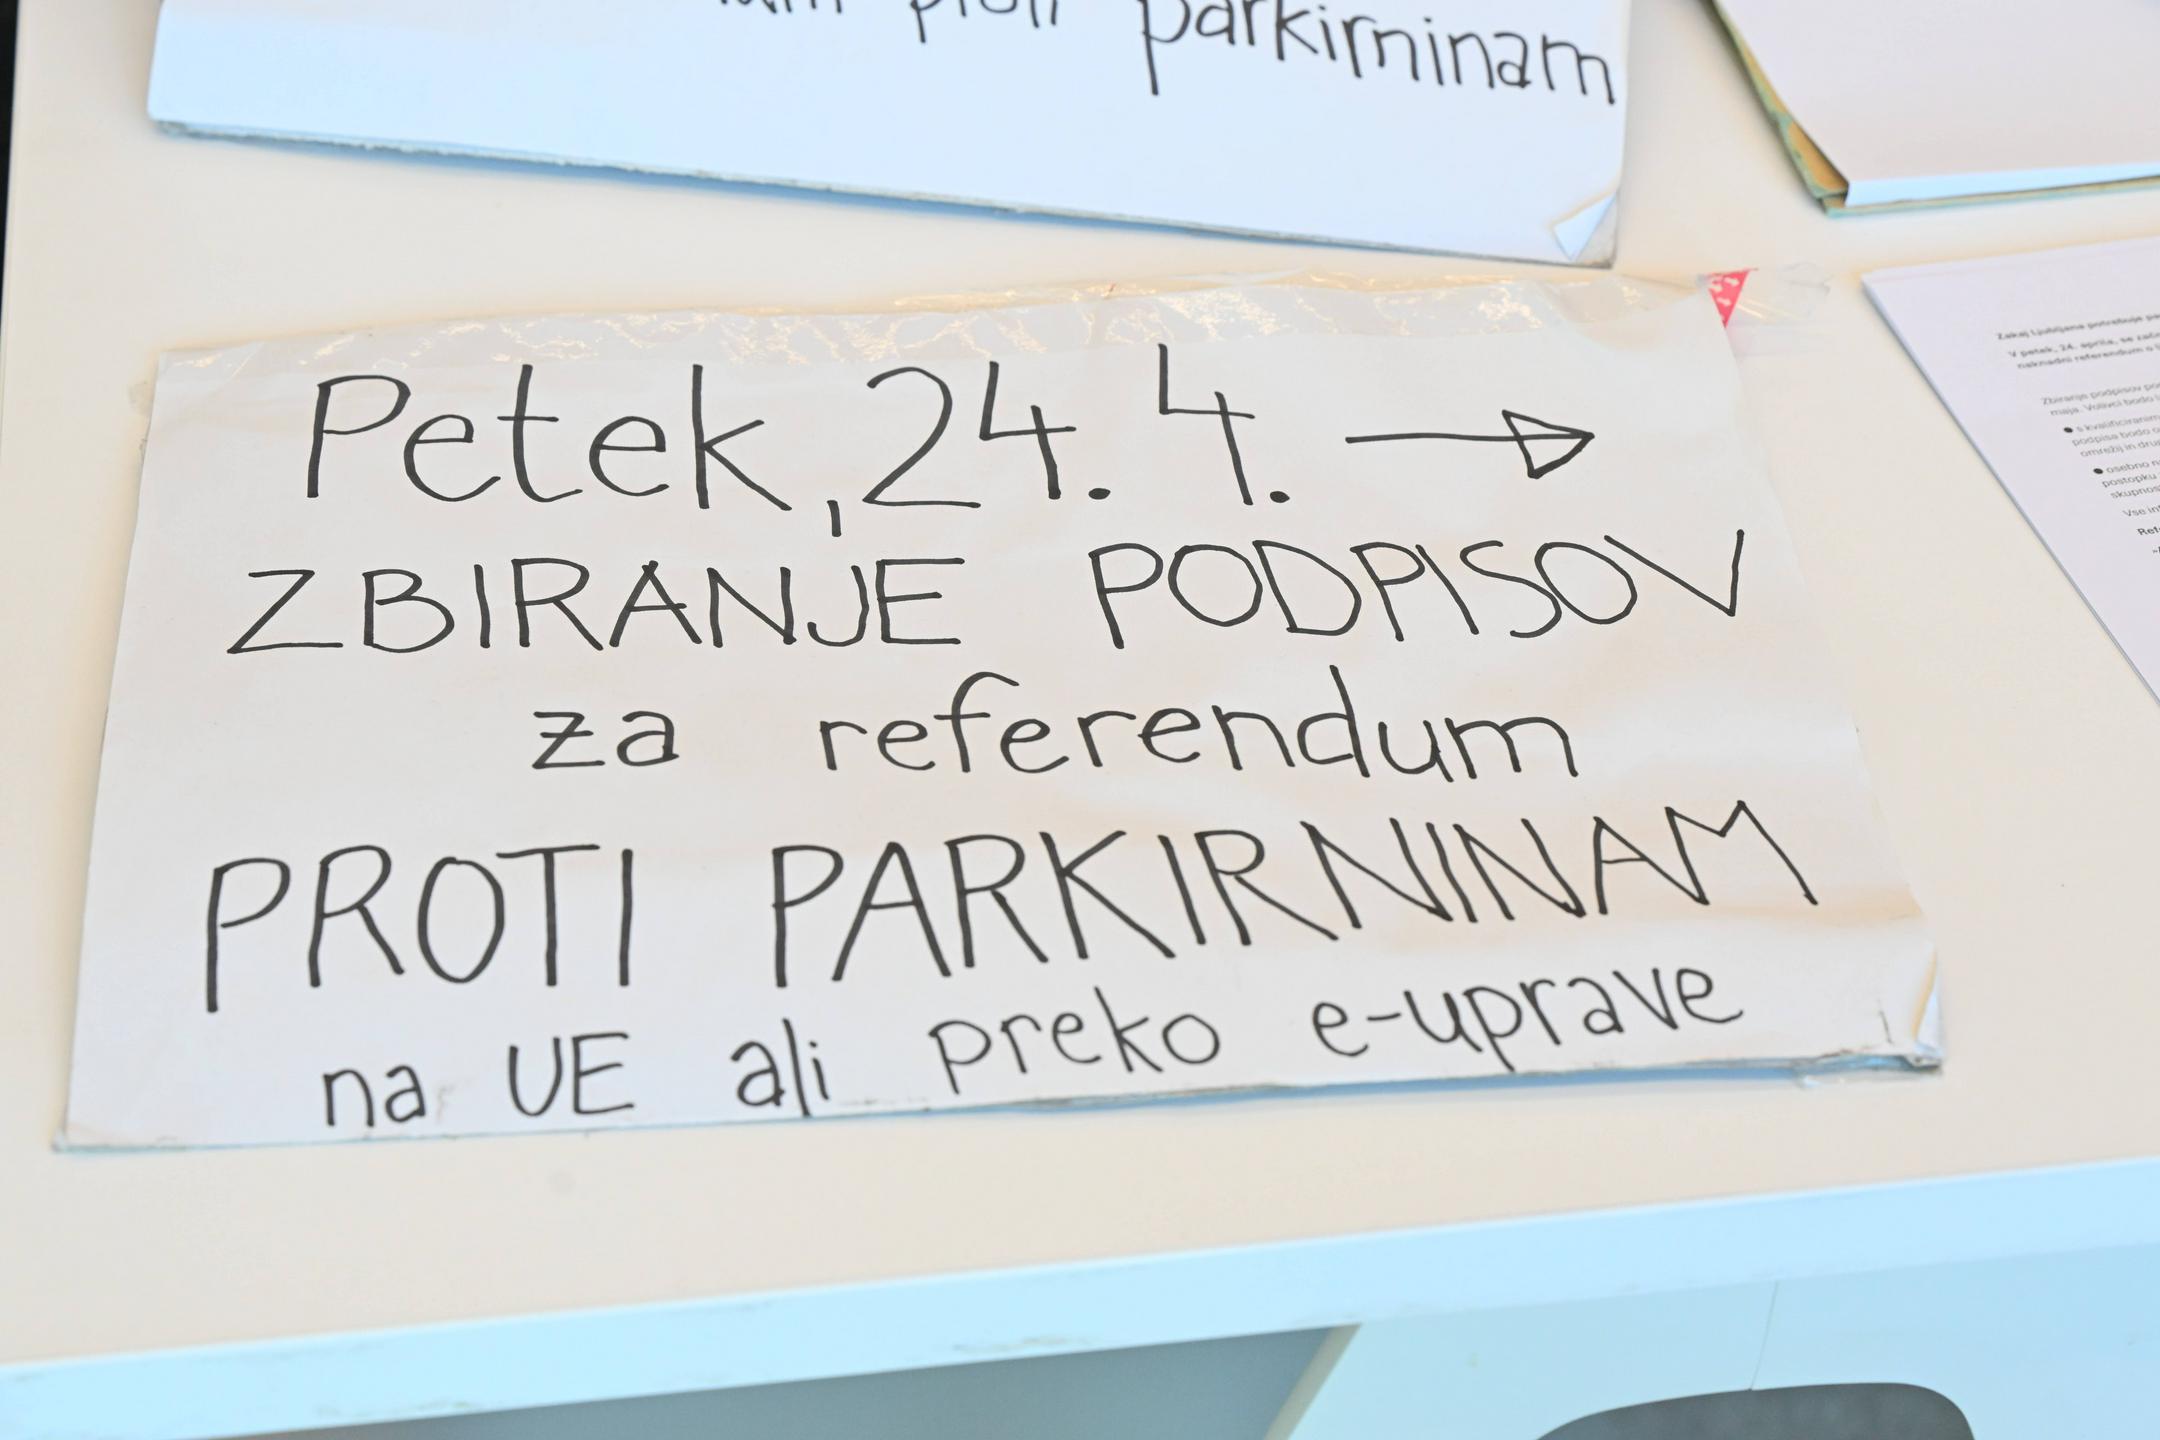 proti parkirninam
Petek, 24. 4.
ZBIRANJE PODPISOV
za referendum
PROTI PARKIRNINAM
na UE ali preko e-uprave
Zakaj Ljubljana potrebuje
V petek, 24. aprila, se
naknadni referendum o
Zbiranje podpisov
maja. Volivci bodo
• s kvalificiranim
podpisa bodo
omrežij in
• osebno
postopku
Vse